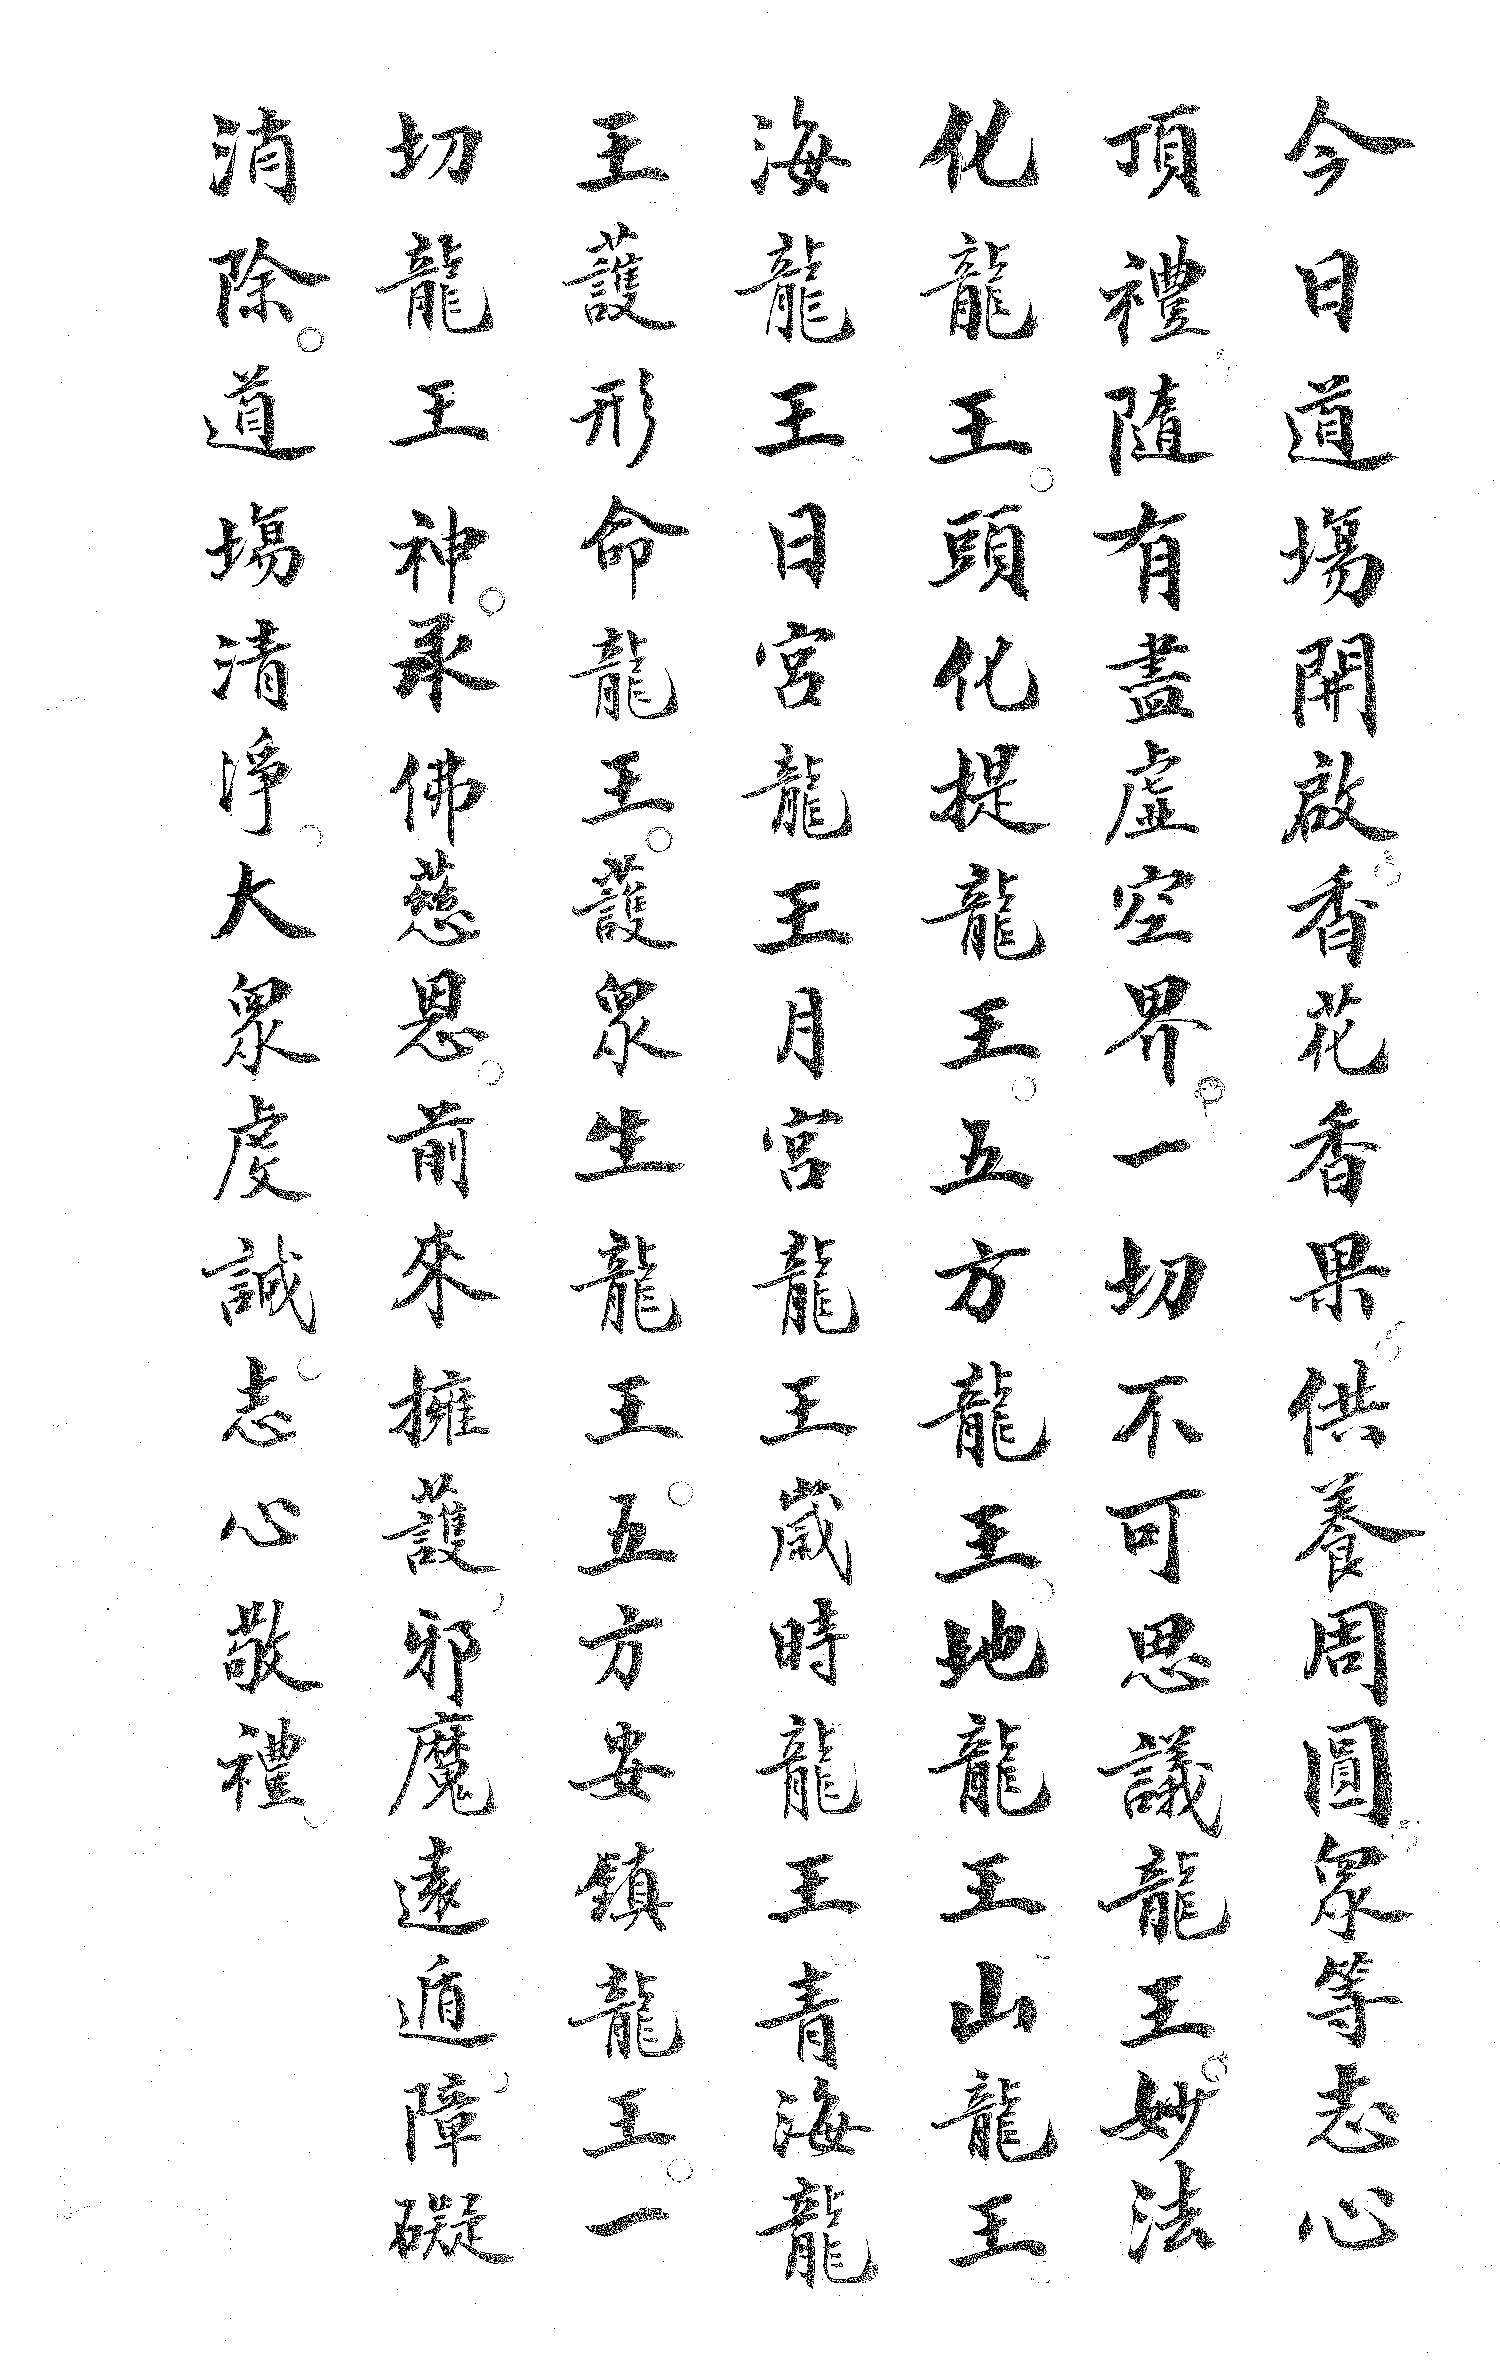 今日道塲開啟香花香果供養周圓眾等志心
頂禮隨有盡虛空界一切不可思議龍王妙法
化龍王頭化提龍王五方龍王地龍王山龍王
海龍王日宮龍王月宮龍王歲時龍王青海龍
王護形命龍王護眾生龍王五方安鎮龍王一
切龍王神承佛慈恩前來擁護邪魔遠遁障礙
消除道塲清淨大眾虔誠志心敬禮